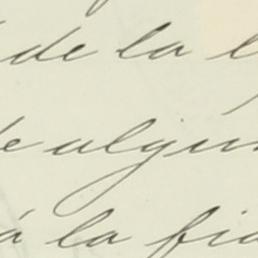 de la
de algun
á la fi